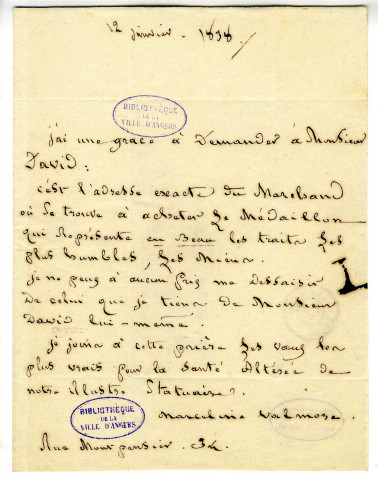 12 janvier - 1838 /
BIBLIOTHÈQUE
DE LA
VILLE D'ANGERS
j'ai une grace à Demander à Monsieur
David :
c'est l'adresse exacte du Marchand
où se trouve à acheter le Médaillon
qui Représente en Beau les traits les
plus humbles, les Miens.
je ne peux à aucun prix me dessaisir
De celui que je tiens de Monsieur
David lui-même.
je joins à cette prière les vœux les
plus vrais pour la santé Altérée de
notre illustre Statuaire.
Marceline Valmore.
BIBLIOTHÈQUE
DE LA
VILLE D'ANGERS
Rue Montpensier. 34.